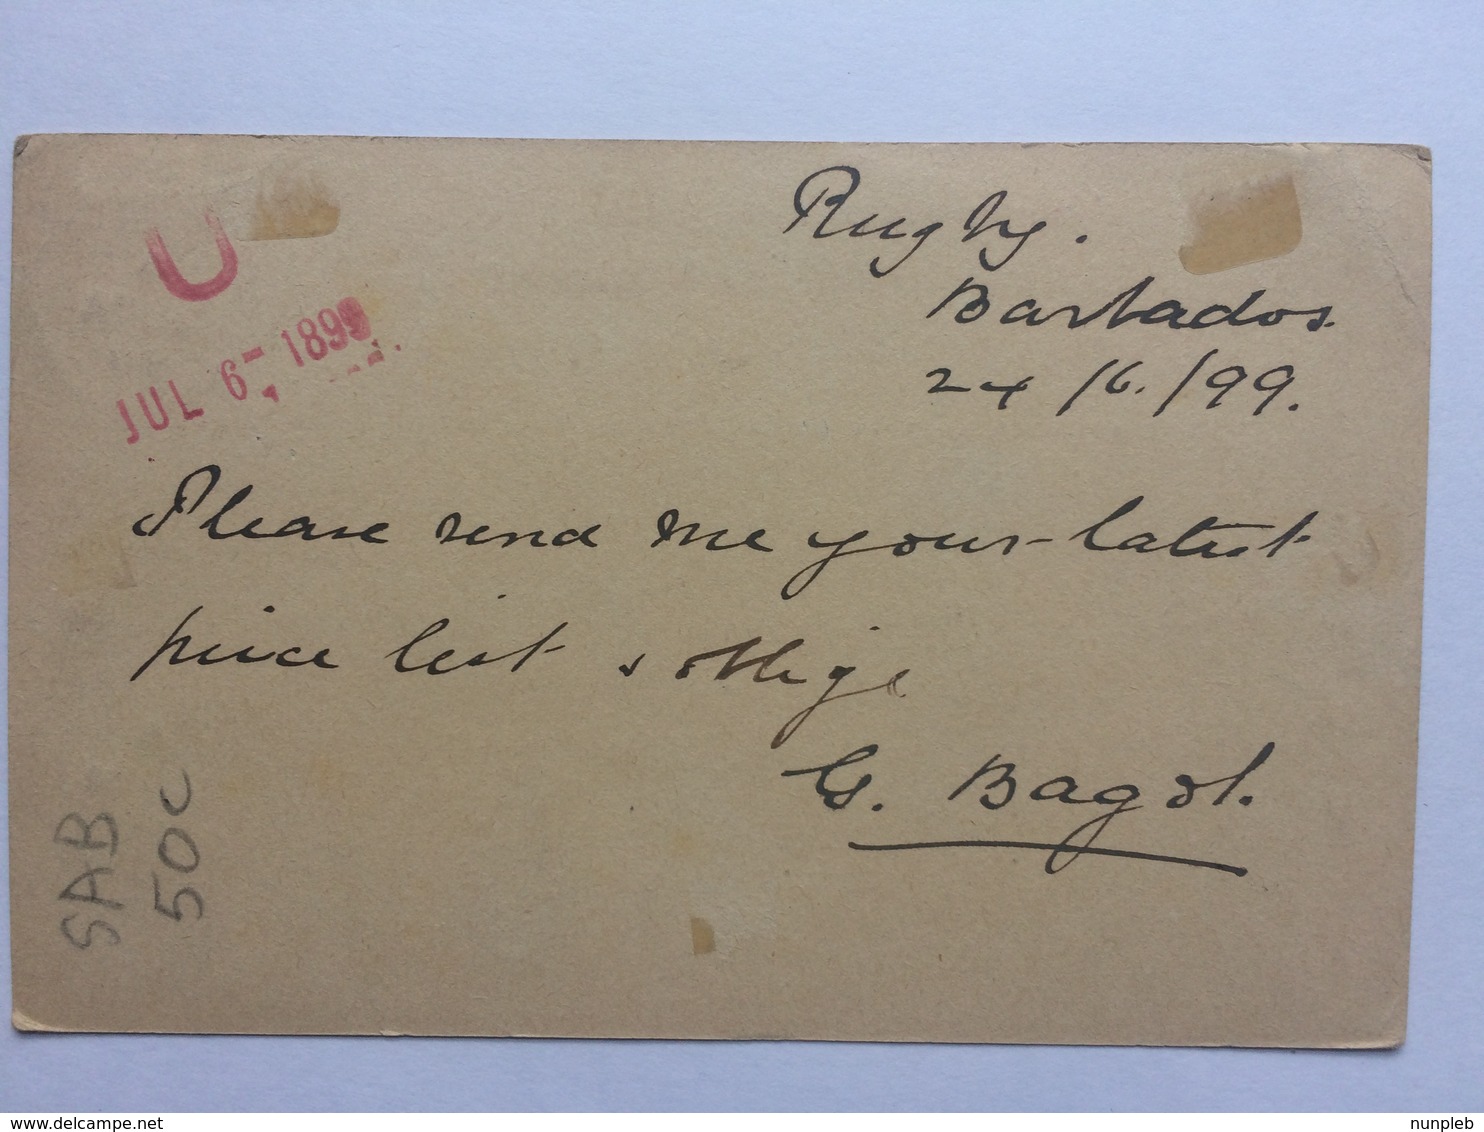 Rugby.
Barbados.
24/6/99.
U
JUL 6 1899
Please send me your latest
price list & oblige
G. Bagot.
SAB
50c
delcampe.net
nunpleb